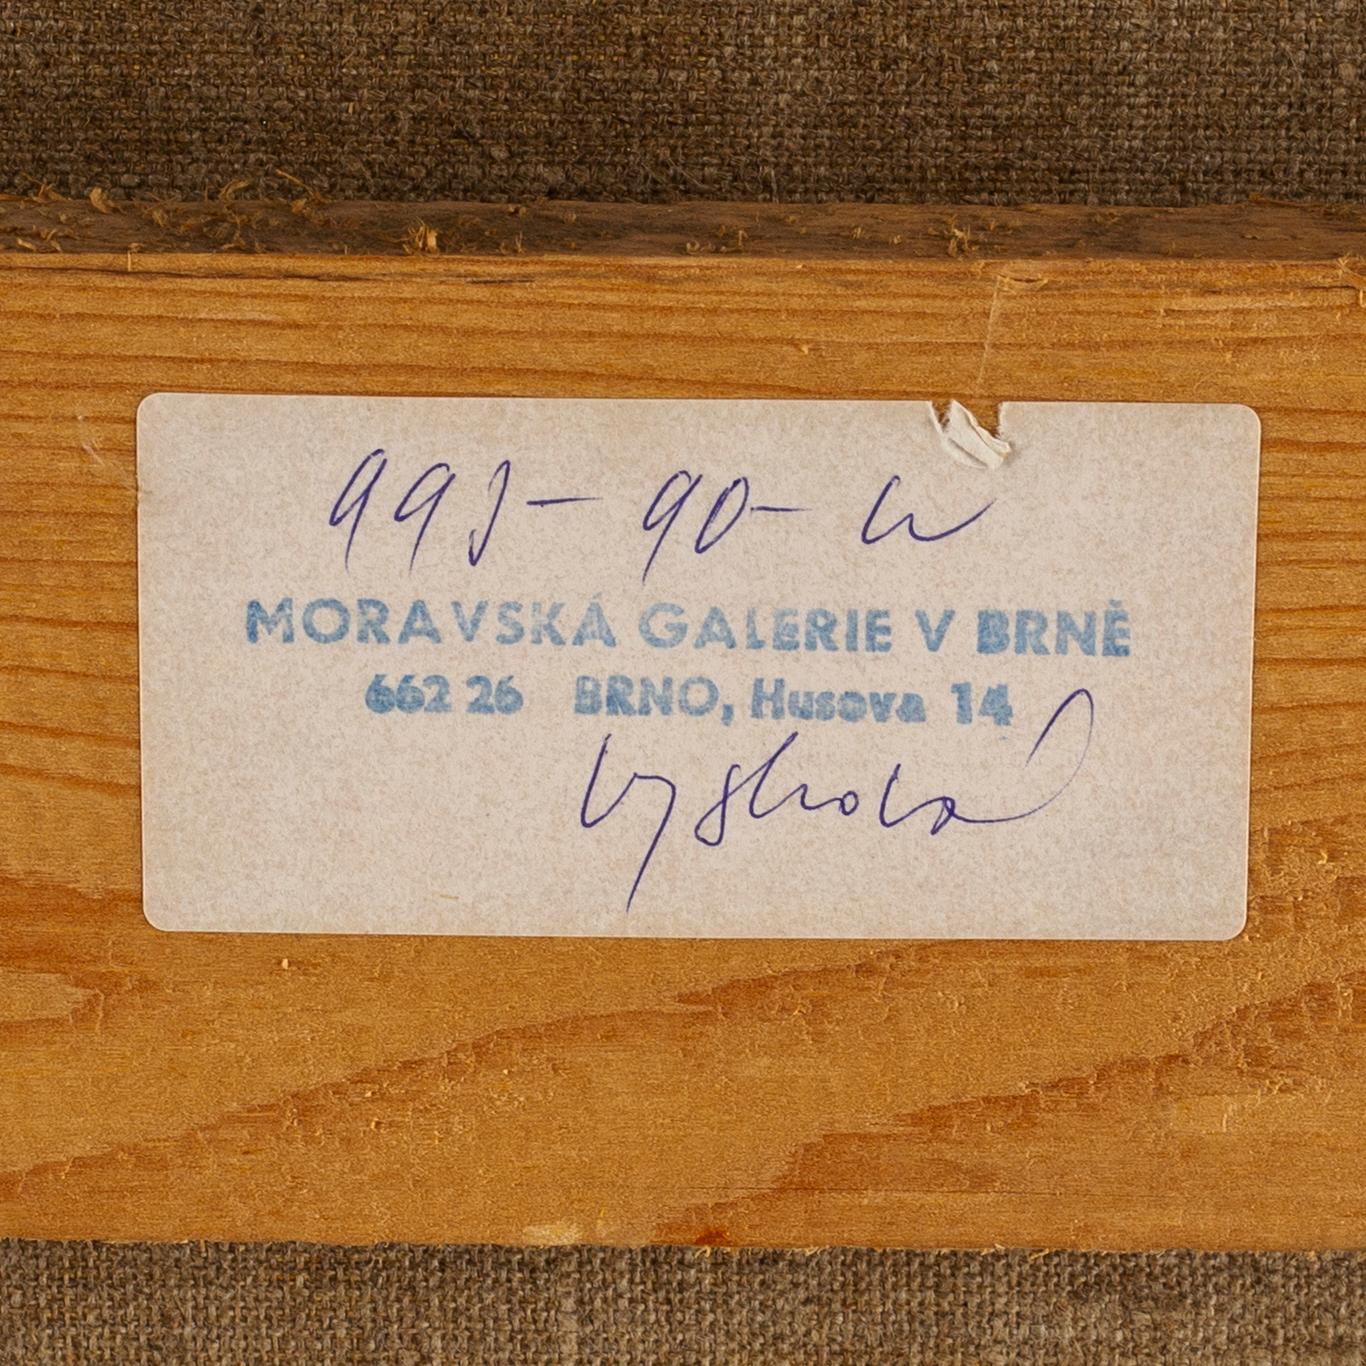 993 - 90 - W
MORAVSKÁ GALERIE V BRNĚ
662 26 BRNO, Husova 14